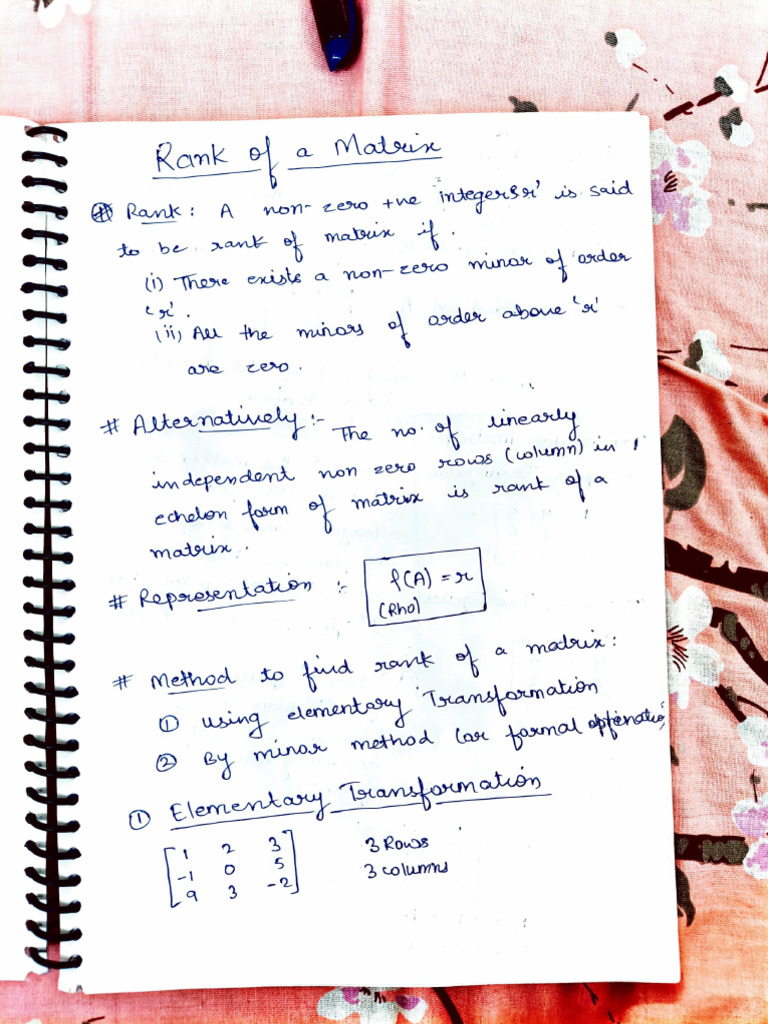 Rank of a Matrix
# Rank: A non-zero +ve integer 'r' is said
to be rank of matrix if.
(i) There exists a non-zero minor of order
'r'.
(ii) All the minors of order above 'r'
are zero.
# Alternatively :- The no. of linearly
independent non zero rows (column) in
echelon form of matrix is rank of a
matrix.
# Representation :- ρ(A) = r
(Rho)
# Method to find rank of a matrix:
① using elementary Transformation
② By minor method (or formal
① Elementary Transformation
1 2 3 3 Rows
-1 0 5 3 columns
9 3 -2